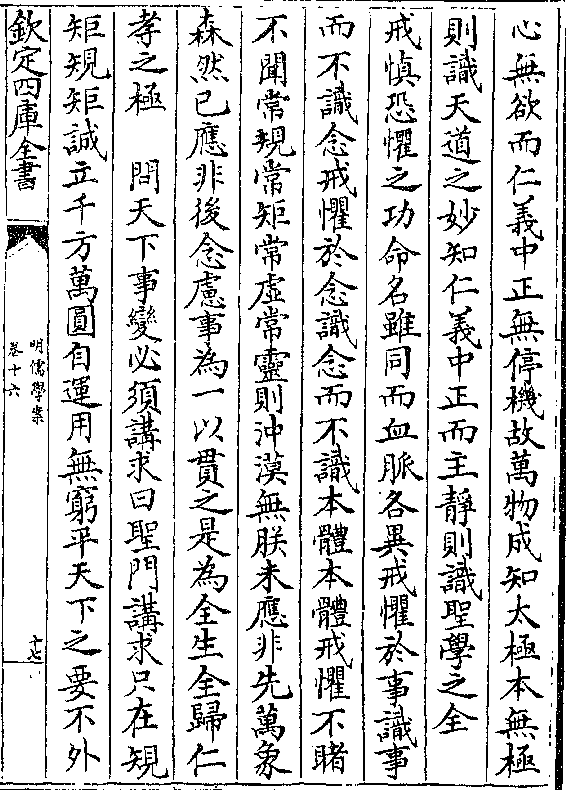 心無欲而仁義中正無停機故萬物成知太極本無極
則識天道之妙知仁義中正而主靜則識聖學之全
戒慎恐懼之功命名雖同而血脈各異戒懼於事識事
而不識念戒懼於念識念而不識本體本體戒懼不睹
不聞常規常矩常虛常靈則沖漠無朕未應非先萬象
森然已應非後念慮事為一以貫之是為全生全歸仁
孝之極　問天下事變必須講求曰聖門講求只在規
矩規矩誠立千方萬圓自運用無窮平天下之要不外
欽定四庫全書
明儒學案
卷十六
十七